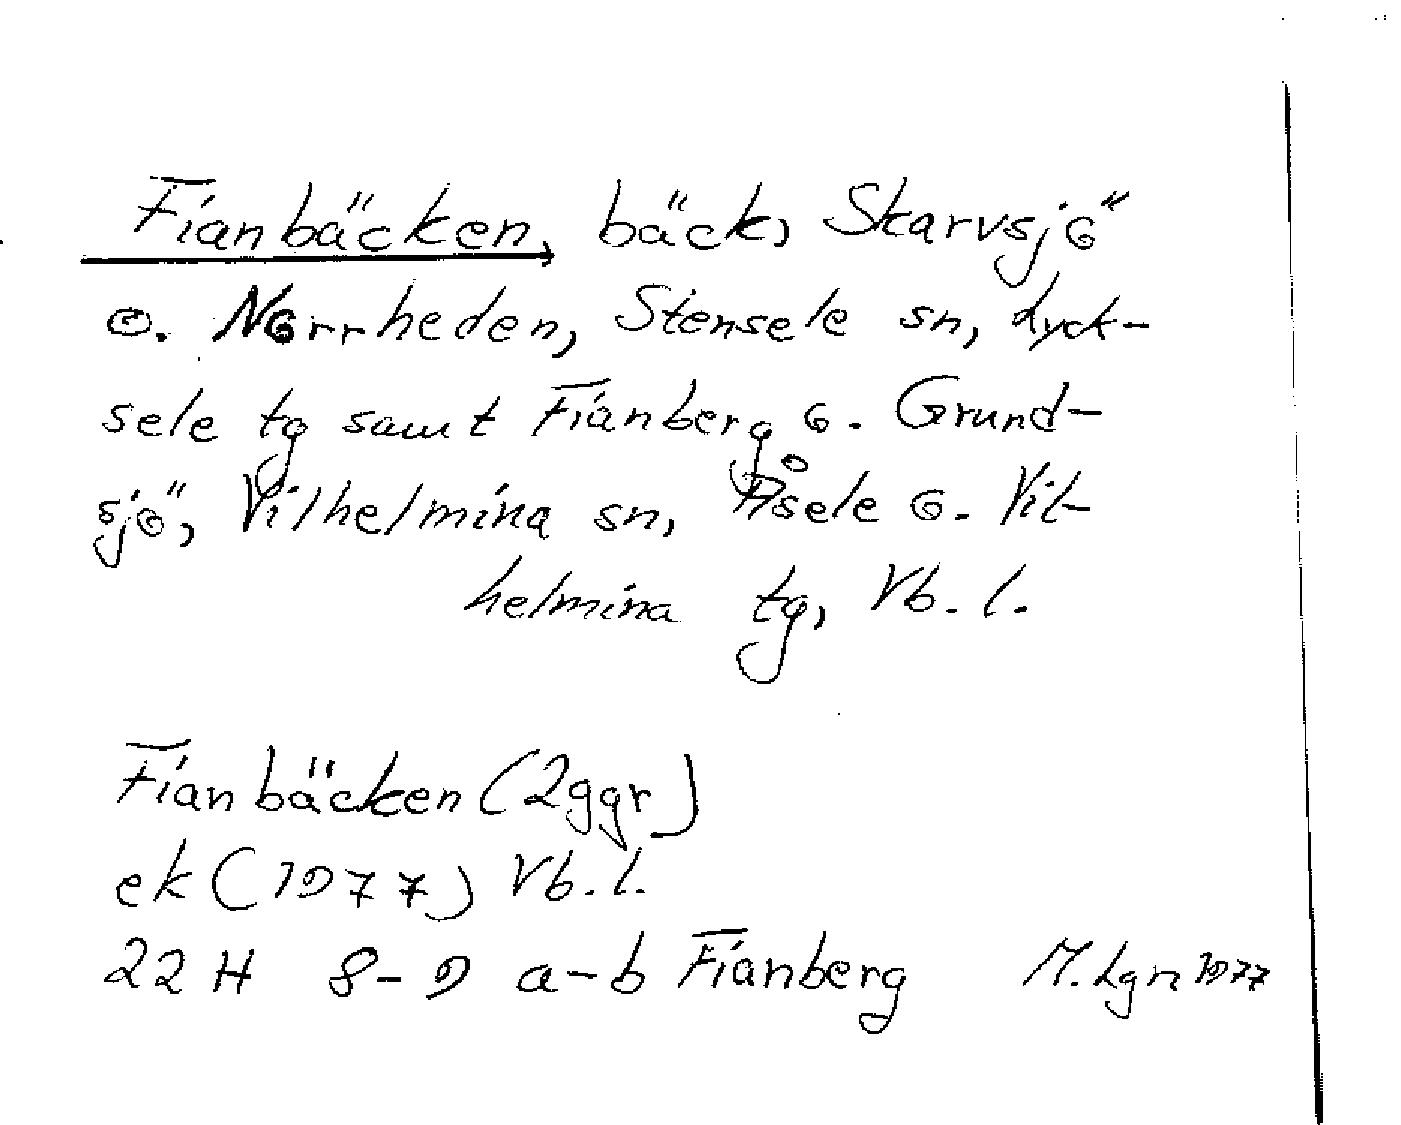 Fianbäcken, bäck, Skarvsjö
o. Norrheden, Stensele sn, Lyck-
sele tg samt Fianberg o. Grund-
sjö, Vilhelmina sn, Åsele o. Vil-
helmina tg, Vb. l.
Fianbäcken (2ggr)
ek (1977) Vb. l.
22 H 8-9 a-b Fianberg M. Lgn 1977